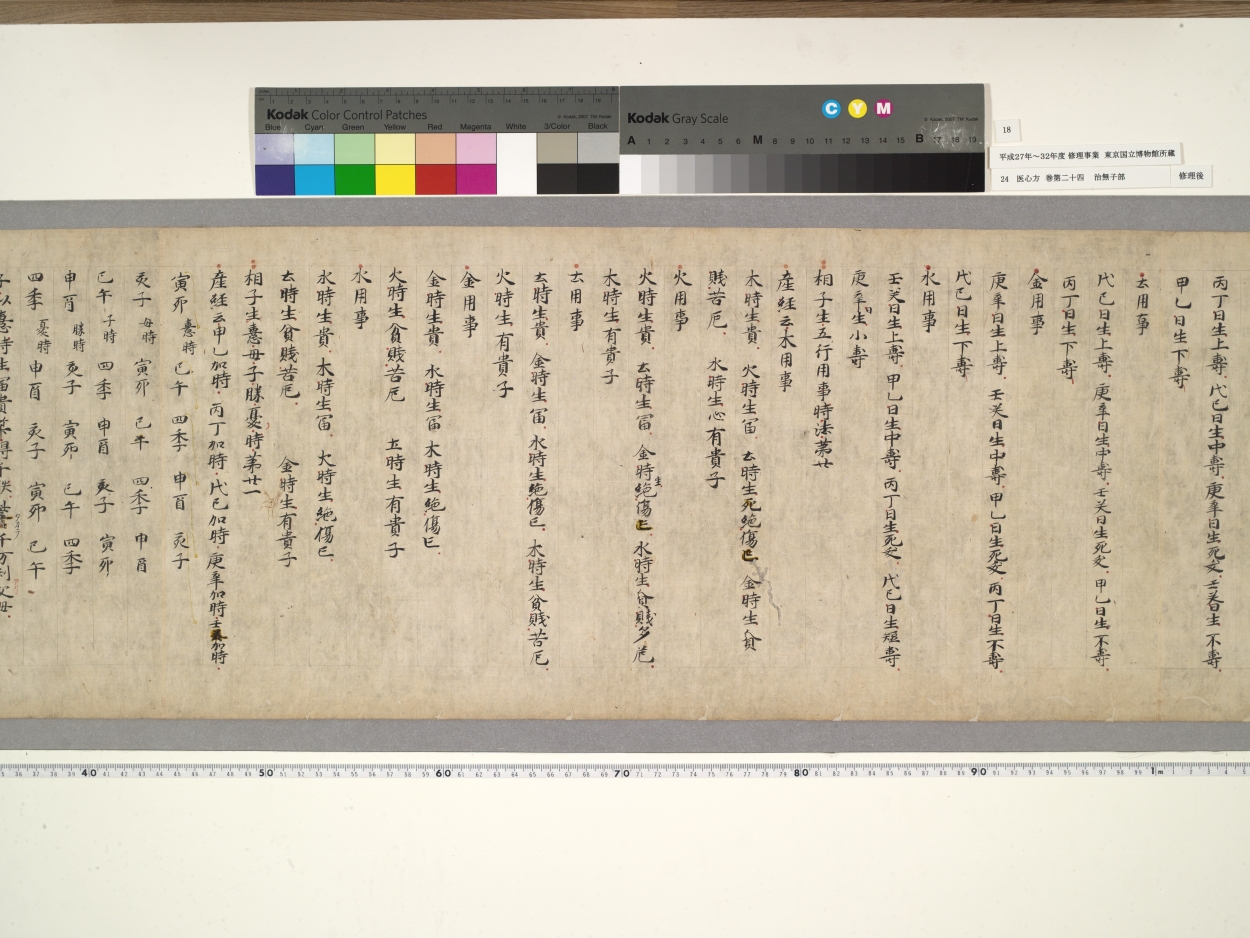 Kodak Color Control Patches
Blue Cyan Green Yellow Red Magenta White 3/Color Black
Kodak Gray Scale
C Y M
A 1 2 3 4 5 6 M 8 9 10 11 12 13 14 15 B 17 18 19
18
平成27年～32年度 修理事業 東京国立博物館所蔵
24 医心方 巻第二十四 治無子部 修理後
丙丁日生上壽 戊己日生中壽 庚辛日生死 壬癸日生不壽
甲乙日生下壽
土用事
戊己日生上壽 庚辛日生中壽 壬癸日生死 甲乙日生不壽
丙丁日生下壽
金用事
庚辛日生上壽 壬癸日生中壽 甲乙日生死 丙丁日生不壽
戊己日生下壽
水用事
壬癸日生上壽 甲乙日生中壽 丙丁日生死 戊己日生短壽
庚辛生小壽
相子生五行用事時法第廿
産経云木用事
木時生貴 火時生冨 土時生死絶傷亡 金時生貧
賤苦厄 水時生心有貴子
火用事
火時生貴 土時生冨 金時生絶傷亡 水時生貧賤多厄
木時生有貴子
土用事
土時生貴 金時生冨 水時生絶傷亡 木時生貧賤苦厄
火時生有貴子
金用事
金時生貴 水時生冨 木時生絶傷亡
火時生貧賤苦厄 土時生有貴子
水用事
水時生貴 木時生冨 火時生絶傷亡
土時生貧賤苦厄 金時生有貴子
相子生意母子勝憂時第廿一
産経云甲乙加時 丙丁加時 戊己加時 庚辛加時 壬癸加時
寅卯 意時 巳午 四季 申酉 亥子
亥子 母時 寅卯 巳午 四季 申酉
巳午 子時 四季 申酉 亥子 寅卯
申酉 勝時 亥子 寅卯 巳午 四季
四季 憂時 申酉 亥子 寅卯 巳午
40 50 60 70 80 90 1m